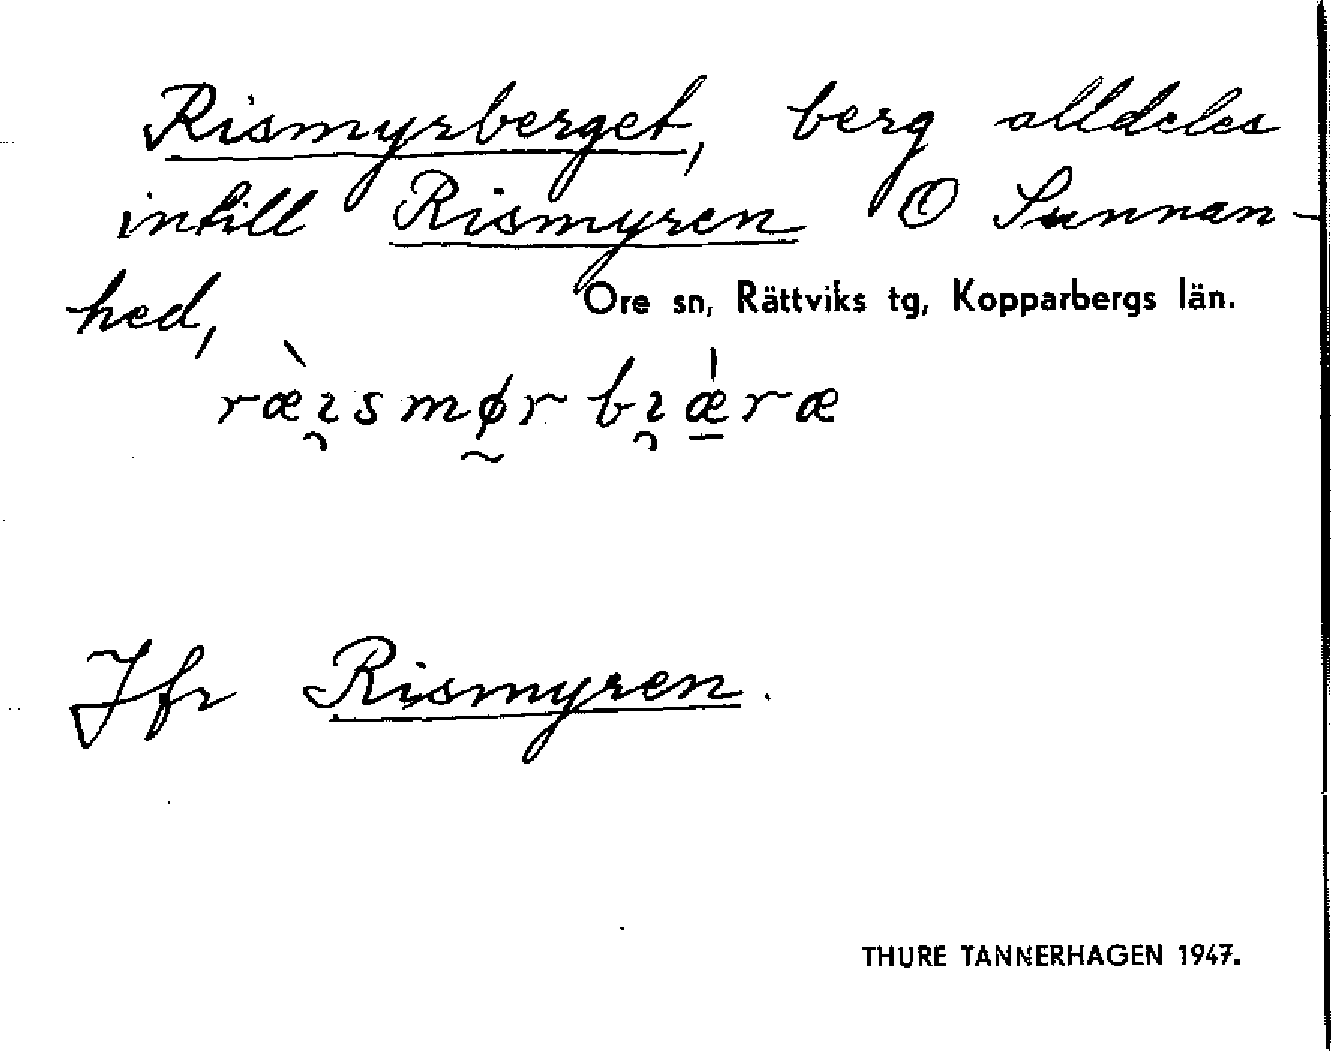 Rismyrberget, berg alldeles
intill Rismyren O Sunnan-
hed,
Ore sn, Rättviks tg, Kopparbergs län.
ræ̀ɪ̯smø̰r bɪ̯ǽ̱ræ
Jfr Rismyren.
THURE TANNERHAGEN 1947.